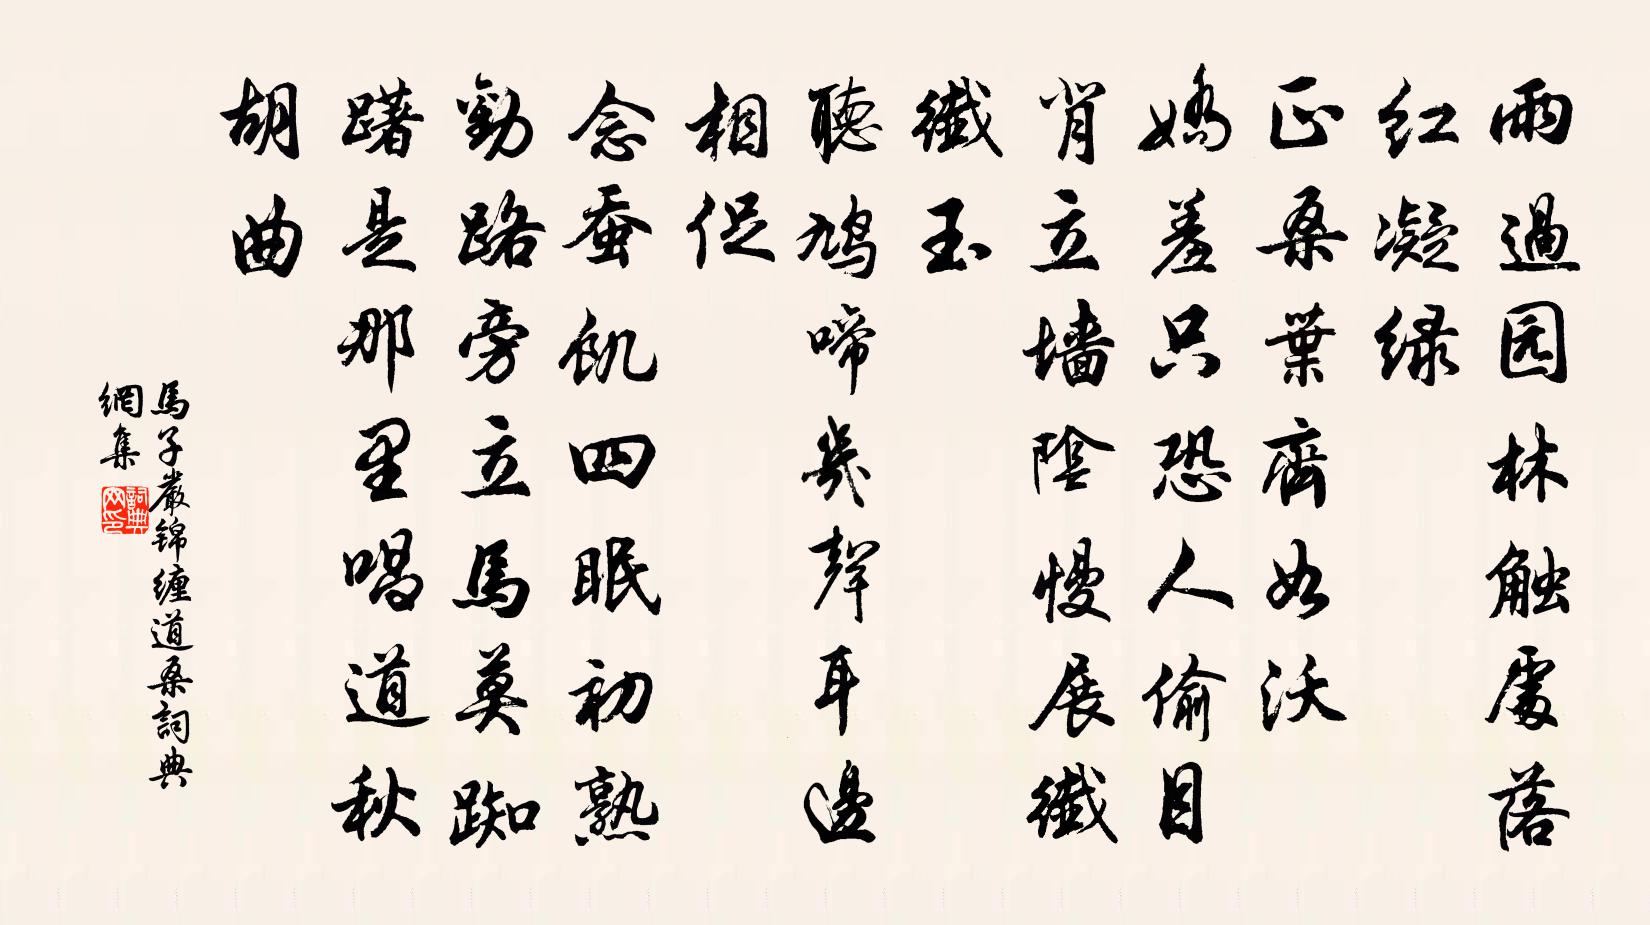 雨過园林触處落
红凝绿
正桑葉齊如沃
嬌羞只恐人偷目
背立墙陰慢展纖
纖玉
聽鳩啼幾聲耳邊
相促
念蚕飢四眠初熟
勸路旁立馬莫踟
躇是那里唱道秋
胡曲
馬子嚴锦缠道桑詞典
網集
詞典
网印